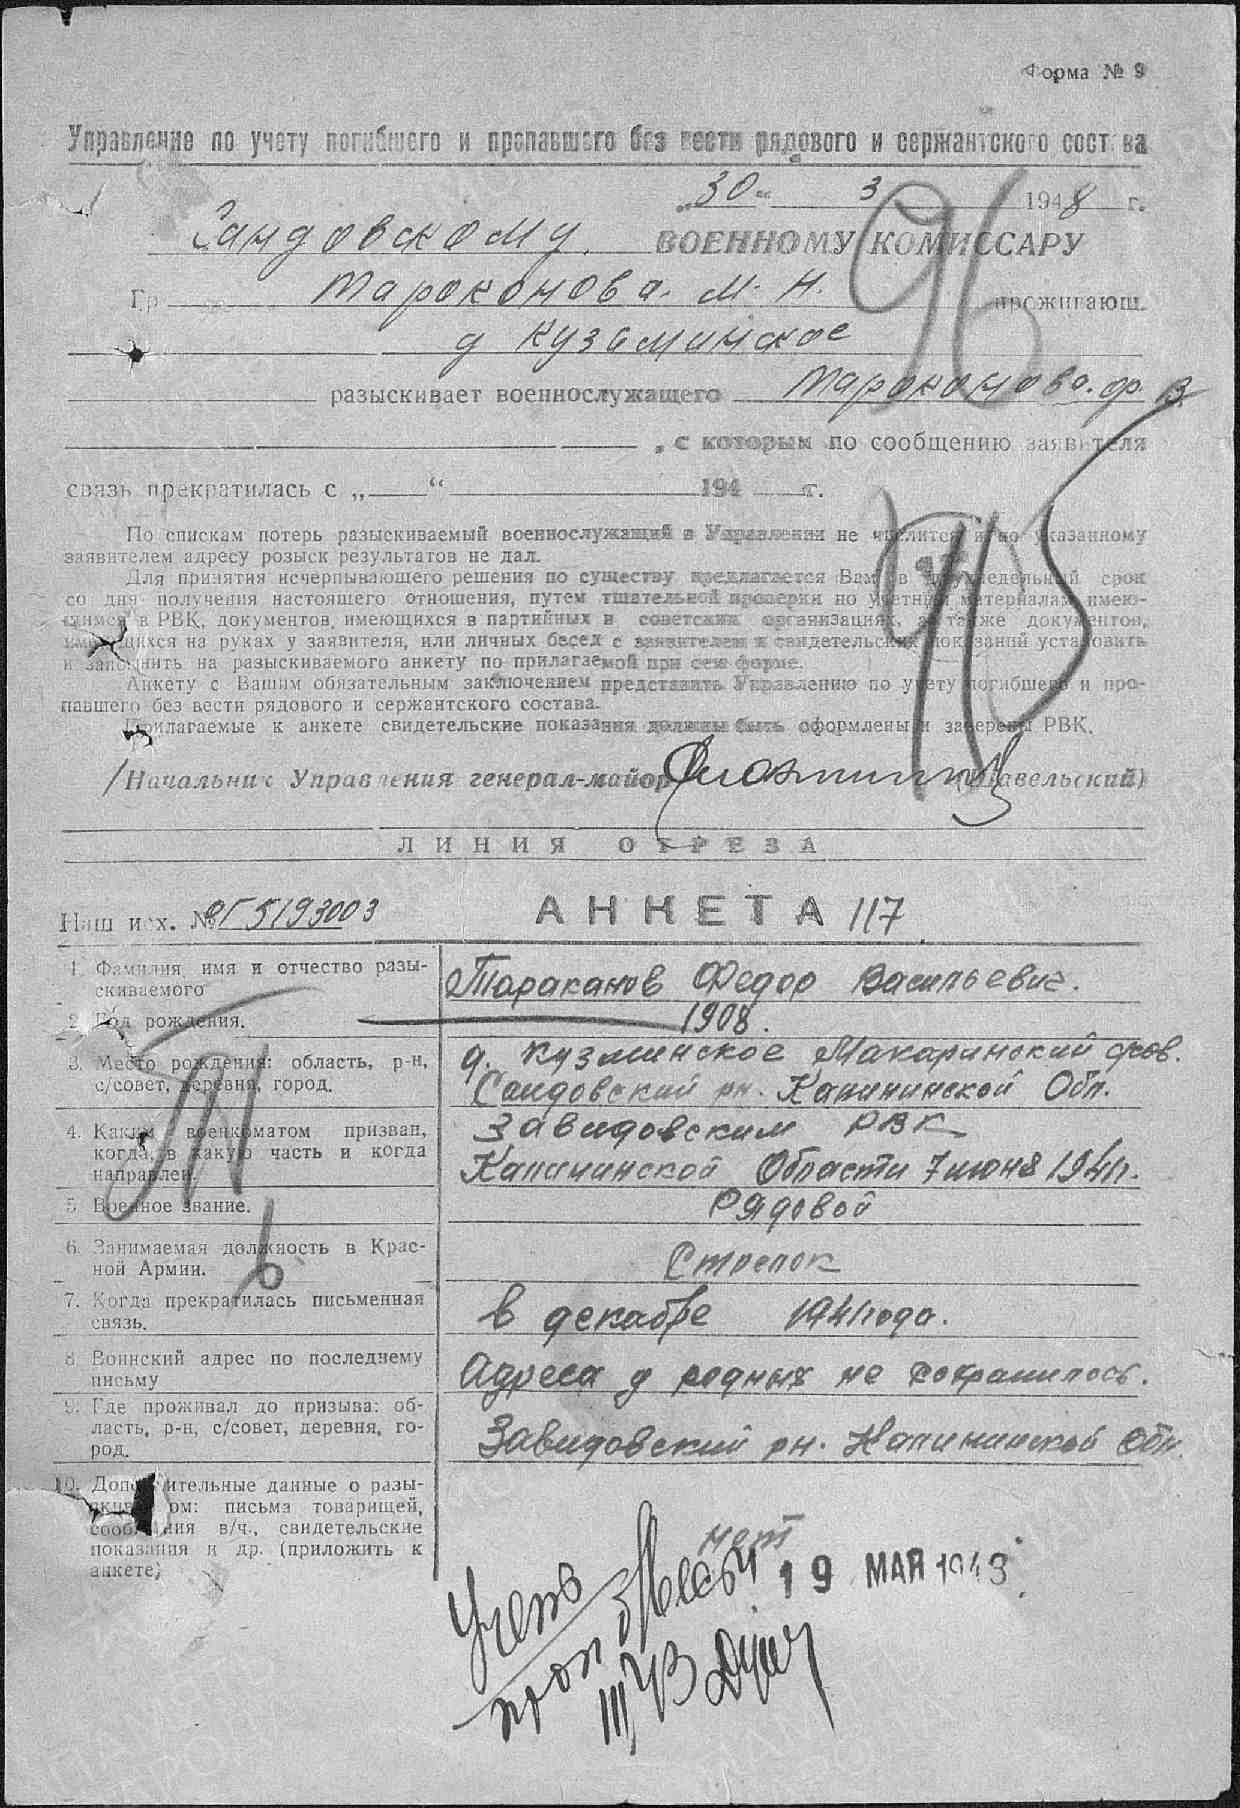 Форма № 9
Управление по учету погибшего и пропавшего без вести рядового и сержантского состава
„30“ 3 1948 г.
Сандовскому ВОЕННОМУ КОМИССАРУ
96
Гр. Тароконова. М. Н. проживающ.
д Кузьминское
разыскивает военнослужащего Тароконова. ф В
, с которым по сообщению заявителя
связь прекратилась с „ “ 194 г.
По спискам потерь разыскиваемый военнослужащий в Управлении не числится и по указанному
заявителем адресу розыск результатов не дал.
Для принятия исчерпывающего решения по существу предлагается Вам в двухнедельный срок
со дня получения настоящего отношения, путем тщательной проверки по учетным материалам, имею-
щимся в РВК, документов, имеющихся в партийных и советских организациях, а также документов,
имеющихся на руках у заявителя, или личных бесед с заявителем и свидетельских показаний установить
и заполнить на разыскиваемого анкету по прилагаемой при сем форме.
Анкету с Вашим обязательным заключением представить Управлению по учету погибшего и про-
павшего без вести рядового и сержантского состава.
Прилагаемые к анкете свидетельские показания должны быть оформлены и заверены РВК.
Начальник Управления генерал-майор (Шавельский)
ЛИНИЯ ОТРЕЗА
Наш исх. № 5193003 АНКЕТА 117
1. Фамилия, имя и отчество разы-
скиваемого
Тараканов Федор Васильевич.
2. Год рождения.
1908.
3. Место рождения: область, р-н,
с/совет, деревня, город.
д. Кузминское Макаринский сров.
Сандовский рн. Калининской Обл.
4. Каким военкоматом призван,
когда, в какую часть и когда
направлен.
Завидовским РВК
Калининской Области 7 июня 1941г.
5. Военное звание.
Рядовой
6. Занимаемая должность в Крас-
ной Армии.
Стрелок
7. Когда прекратилась письменная
связь.
в декабре 1941 года.
8. Воинский адрес по последнему
письму
Адреса у родных не сохранилось.
9. Где проживал до призыва: об-
ласть, р-н, с/совет, деревня, го-
род.
Завидовский рн. Калининской Обл.
10. Дополнительные данные о разы-
скиваемом: письма товарищей,
сообщения в/ч., свидетельские
показания и др. (приложить к
анкете)
нет
19 МАЯ 1948